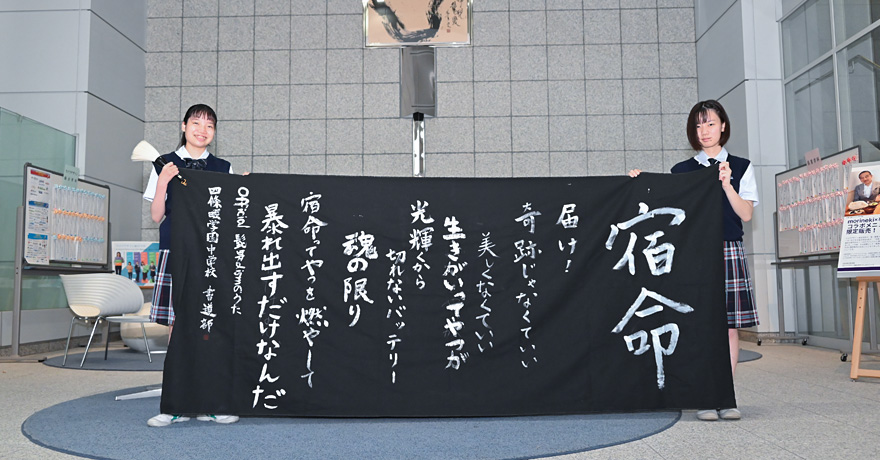 宿命
届け!
奇跡じゃなくていい
美しくなくていい
生きがいってやつが
光輝くから
切れないバッテリー
魂の限り
宿命ってやつを燃やして
暴れ出すだけなんだ
四條畷学園中学校 書道部
morineki×
コラボメニュ
限定販売!